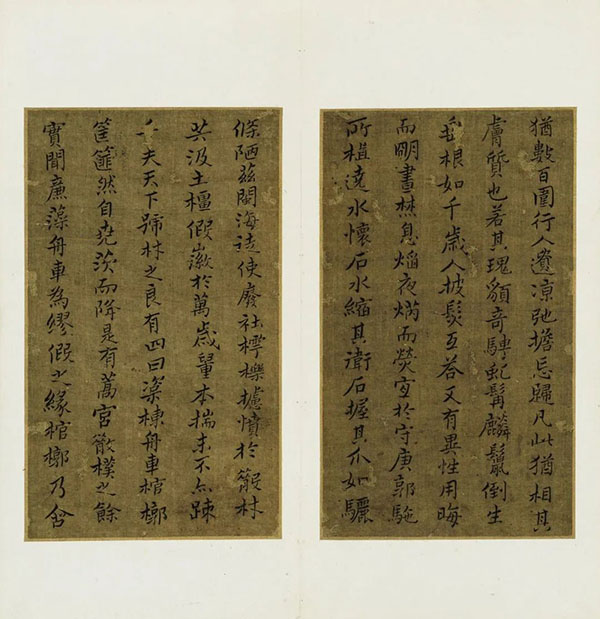 猶數百圍行人凉弛擔忘歸凡此猶相其
膚質也若其瑰額奇騁虬髯麟鬣倒生
根如千歲人披髮互答又有異性用晦
而明晝焚息焰夜而熒宜於守庚郭駞
所植遶水懷石水縮其衛石握其爪如驪
條陋茲閩海遠使廢社樗櫟攄憤於林
共汲土橿假於萬歲量本揣末不亦踈
乎夫天下號林之良有四曰梁棟舟車棺槨
筐篚然自堯茨而降是有萬宮樸之餘
實聞廉藻舟車為繆假之緣棺槨乃含